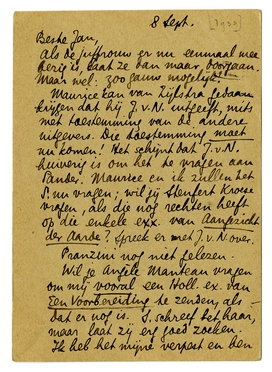 8 Sept. [1939]
Beste Jan,
Als de juffrouw er nu eenmaal mee
bezig is, laat ze dan maar doorgaan.
Maar wel: zoo gauw mogelijk!
Maurice kan van Zijlstra gedaan
krijgen dat hij J.v.N. uitgeeft, mits
met toestemming van de andere
uitgevers. Die toestemming moet
nu komen! Het schijnt dat J.v.N.
huiverig is om het te vragen aan
Sander. Maurice en ik zullen het
S. nu vragen; wil jij Stenfert Kroese
vragen, als die nog rechten heeft
op die enkele ex. van Aangezicht
der Aarde? Spreek er met J.v.N. over.
Pranzini nog niet gelezen.
Wil je Angèle Manteau vragen
om mij vooral een Holl. ex. van
Een Voorbereiding te zenden, als
dat er nog is. S. schreef het haar,
maar laat zij erg goed zoeken.
Ik heb het mijne verpast en ben